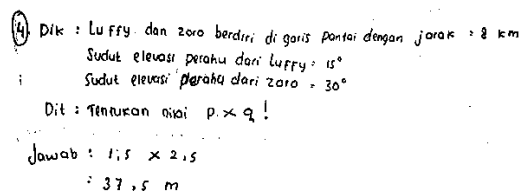 ④ Dik : Luffy dan zoro berdiri di garis pantai dengan jarak : 8 km
Sudut elevasi perahu dari Luffy : 15°
Sudut elevasi perahu dari zoro = 30°
Dit : Tentukan nilai p. × q !
Jawab : 1,5 × 2,5
: 37,5 m